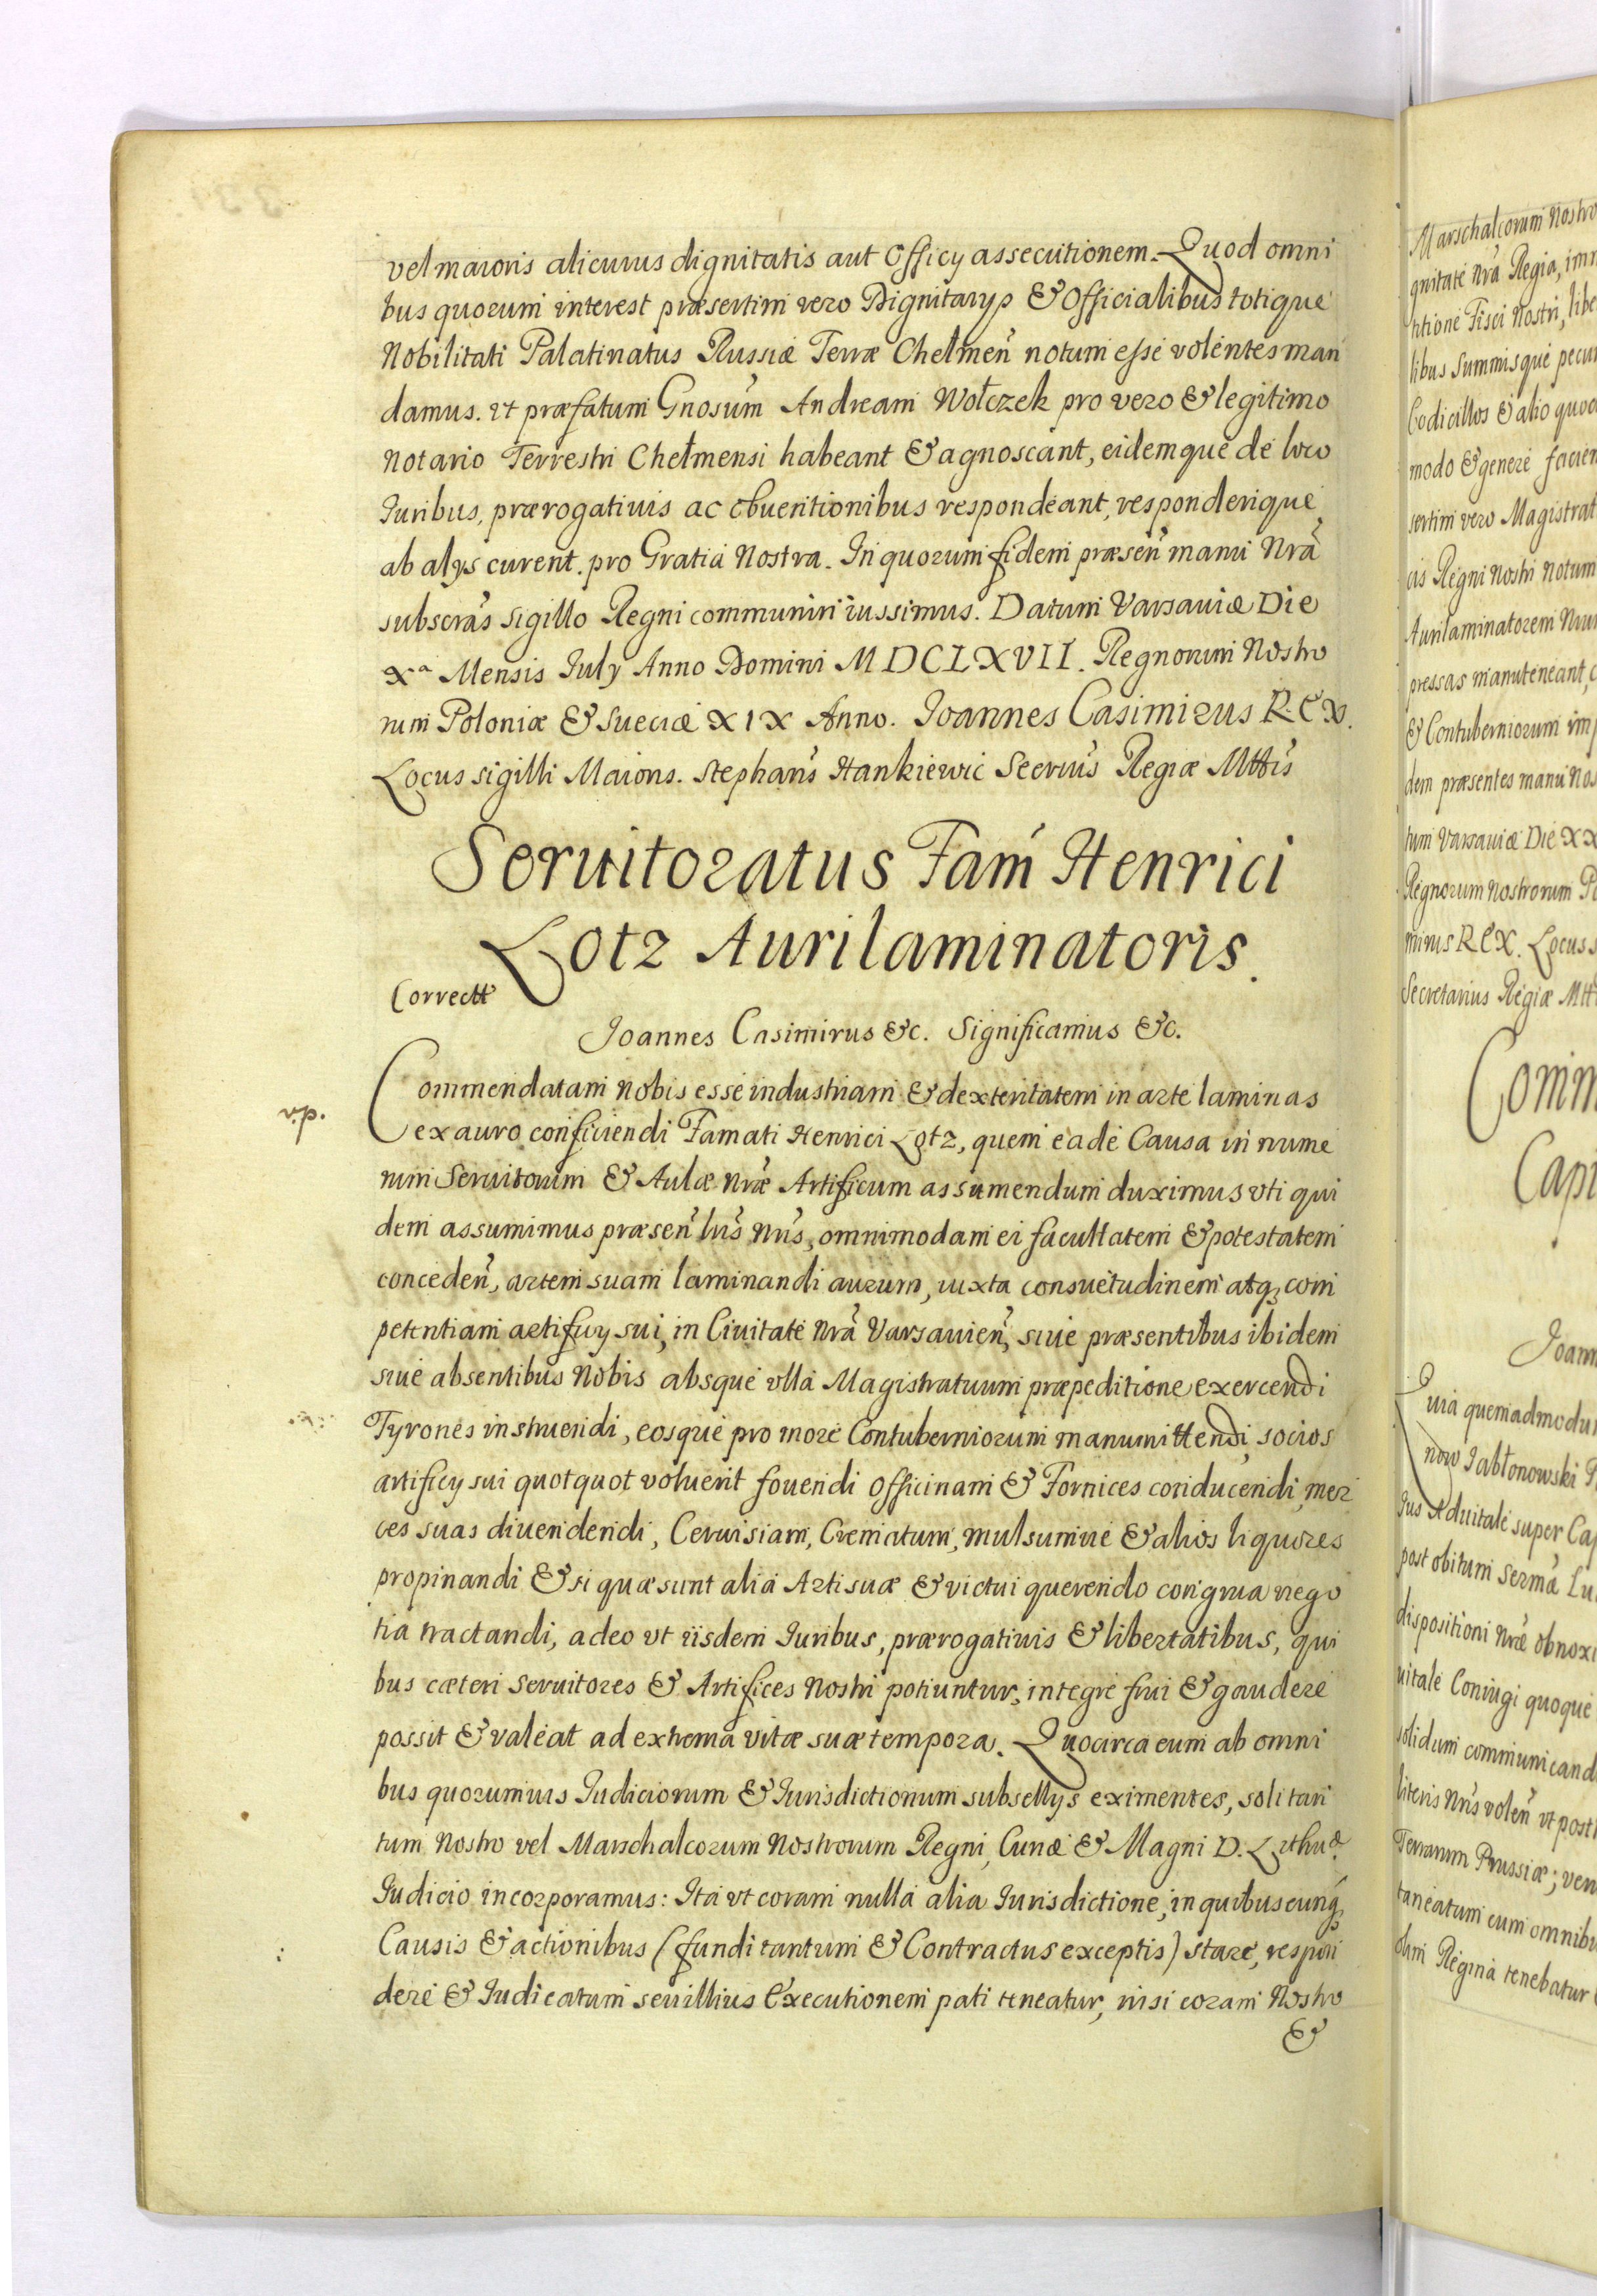 vel maioris alicuius dignitatis aut Officy assecutionem. Quod omni
bus quorum interest præsertim vero Dignitarys & Officialibus totique
Nobilitati Palatinatus Russiæ Terræ Chelmeñ notum esse volentes man
damus. vt præfatum Gnosum̃ Andream Wołczek pro vero & legitimo
Notario Terrestri Chełmensi habeant & agnoscant, eidemque de loco
Iuribus, prærogativis ac obventionibus respondeant, responderique
ab alys curent. pro Gratia Nostra. In quorum fidem præseñ manu Nrã
subscrãs sigillo Regni communiri iussimus. Datum Varsaviæ Die
Xa Mensis July Anno Domini MDCLXVII. Regnorum Nostro
rum Poloniæ & Sueciæ XIX Anno. Joannes Casimirus REX.
Locus sigilli Maioris. Stephañs Hankiewic Secrius̃ Regiæ Mttis̃
Servitoratus Fam̃ Henrici
Lotz Aurilaminatoris.
Correctt
Joannes Casimirus &c. Significamus &c.
Commendatam Nobis esse industriam & dexteritatem in arte laminas
v.p.
ex auro conficiendi Famati Henrici Lotz, quem ea de Causa in nume
rum Servitorum & Aulæ Nræ̃ Artificum assumendum duximus vti qui
dem assumimus præseñ lrĩs Nrĩs, omnimodam ei facultatem & potestatem
concedeñ, artem suam laminandi aurum, iuxta consuetudinem atq; com
petentiam artificy sui, in Civitate Nrã Varsavieñ, sive præsentibus ibidem
sive absentibus Nobis absque vlla Magistratuum præpeditione exercendi
Tyrones instruendi, eosque pro more Contuberniorum manumittendi socios
artificy sui quotquot voluerit fovendi Officinam & Fornices conducendi, mer
ces suas divendendi, Cervisiam, Crematum, mulsumve & alios liquores
propinandi & si quæ sunt alia Arti suæ & victui querendo congrua nego
tia tractandi, adeo vt iisdem Iuribus, prærogativis & libertatibus, qui
bus cæteri Servitores & Artifices Nostri potiuntur, integre frui & gaudere
possit & valeat ad extrema vitæ suæ tempora. Quocirca eum ab omni
bus quorumvis Iudiciorum & Iurisdictionum subsellys eximentes, soli tan
tum Nostro vel Marschalcorum Nostrorum Regni, Curiæ & Magni D. Lithuæ
Iudicio incorporamus: Ita vt coram nulla alia Iurisdictione, in quibuscunq;
Causis & actionibus (fundi tantum & Contractus exceptis) stare, respon
dere & Iudicatum seu illius Executionem pati teneatur, nisi coram Nostro
&
Marschalcorum Nostro
gnitate Nrã Regia, imm
ntione Fisci Nostri, libe
libus Summisque pecun
Codicillos & alio quoc
modo & genere facien
sertim vero Magistrat
cis Regni Nostri Notum
Aurilaminatorem Nrum
pressas manuteneant, c
& Contuberniorum imp
dem præsentes manu Nos
tum Varsaviæ Die XX
Regnorum Nostrorum Po
mirus REX. Locus s
Secretarius Regiæ Mtt
Comm
Capi
Joann
Quia quemadmodum
now Jabłonowski P
Ius Advitale super Cap
post obitum Sermã Lu
dispositioni Nræ̃ obnoxi
vitale Coniugi quoque
solidum communicand
literis Nrĩs voleñ vt post
Terrarum Prussiæ; ven
taneatum cum omnibu
olim Regina tenebatur